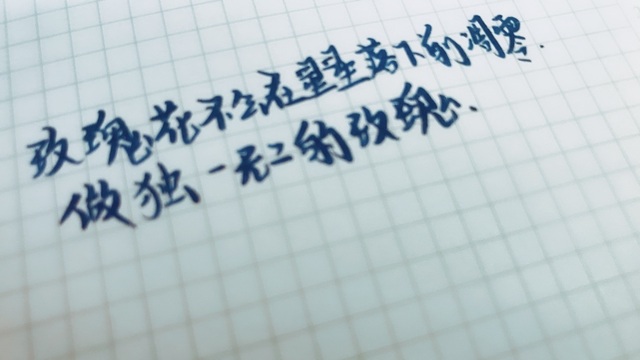 玫瑰花不会在星星落下的凋零.
做独一无二的玫瑰.